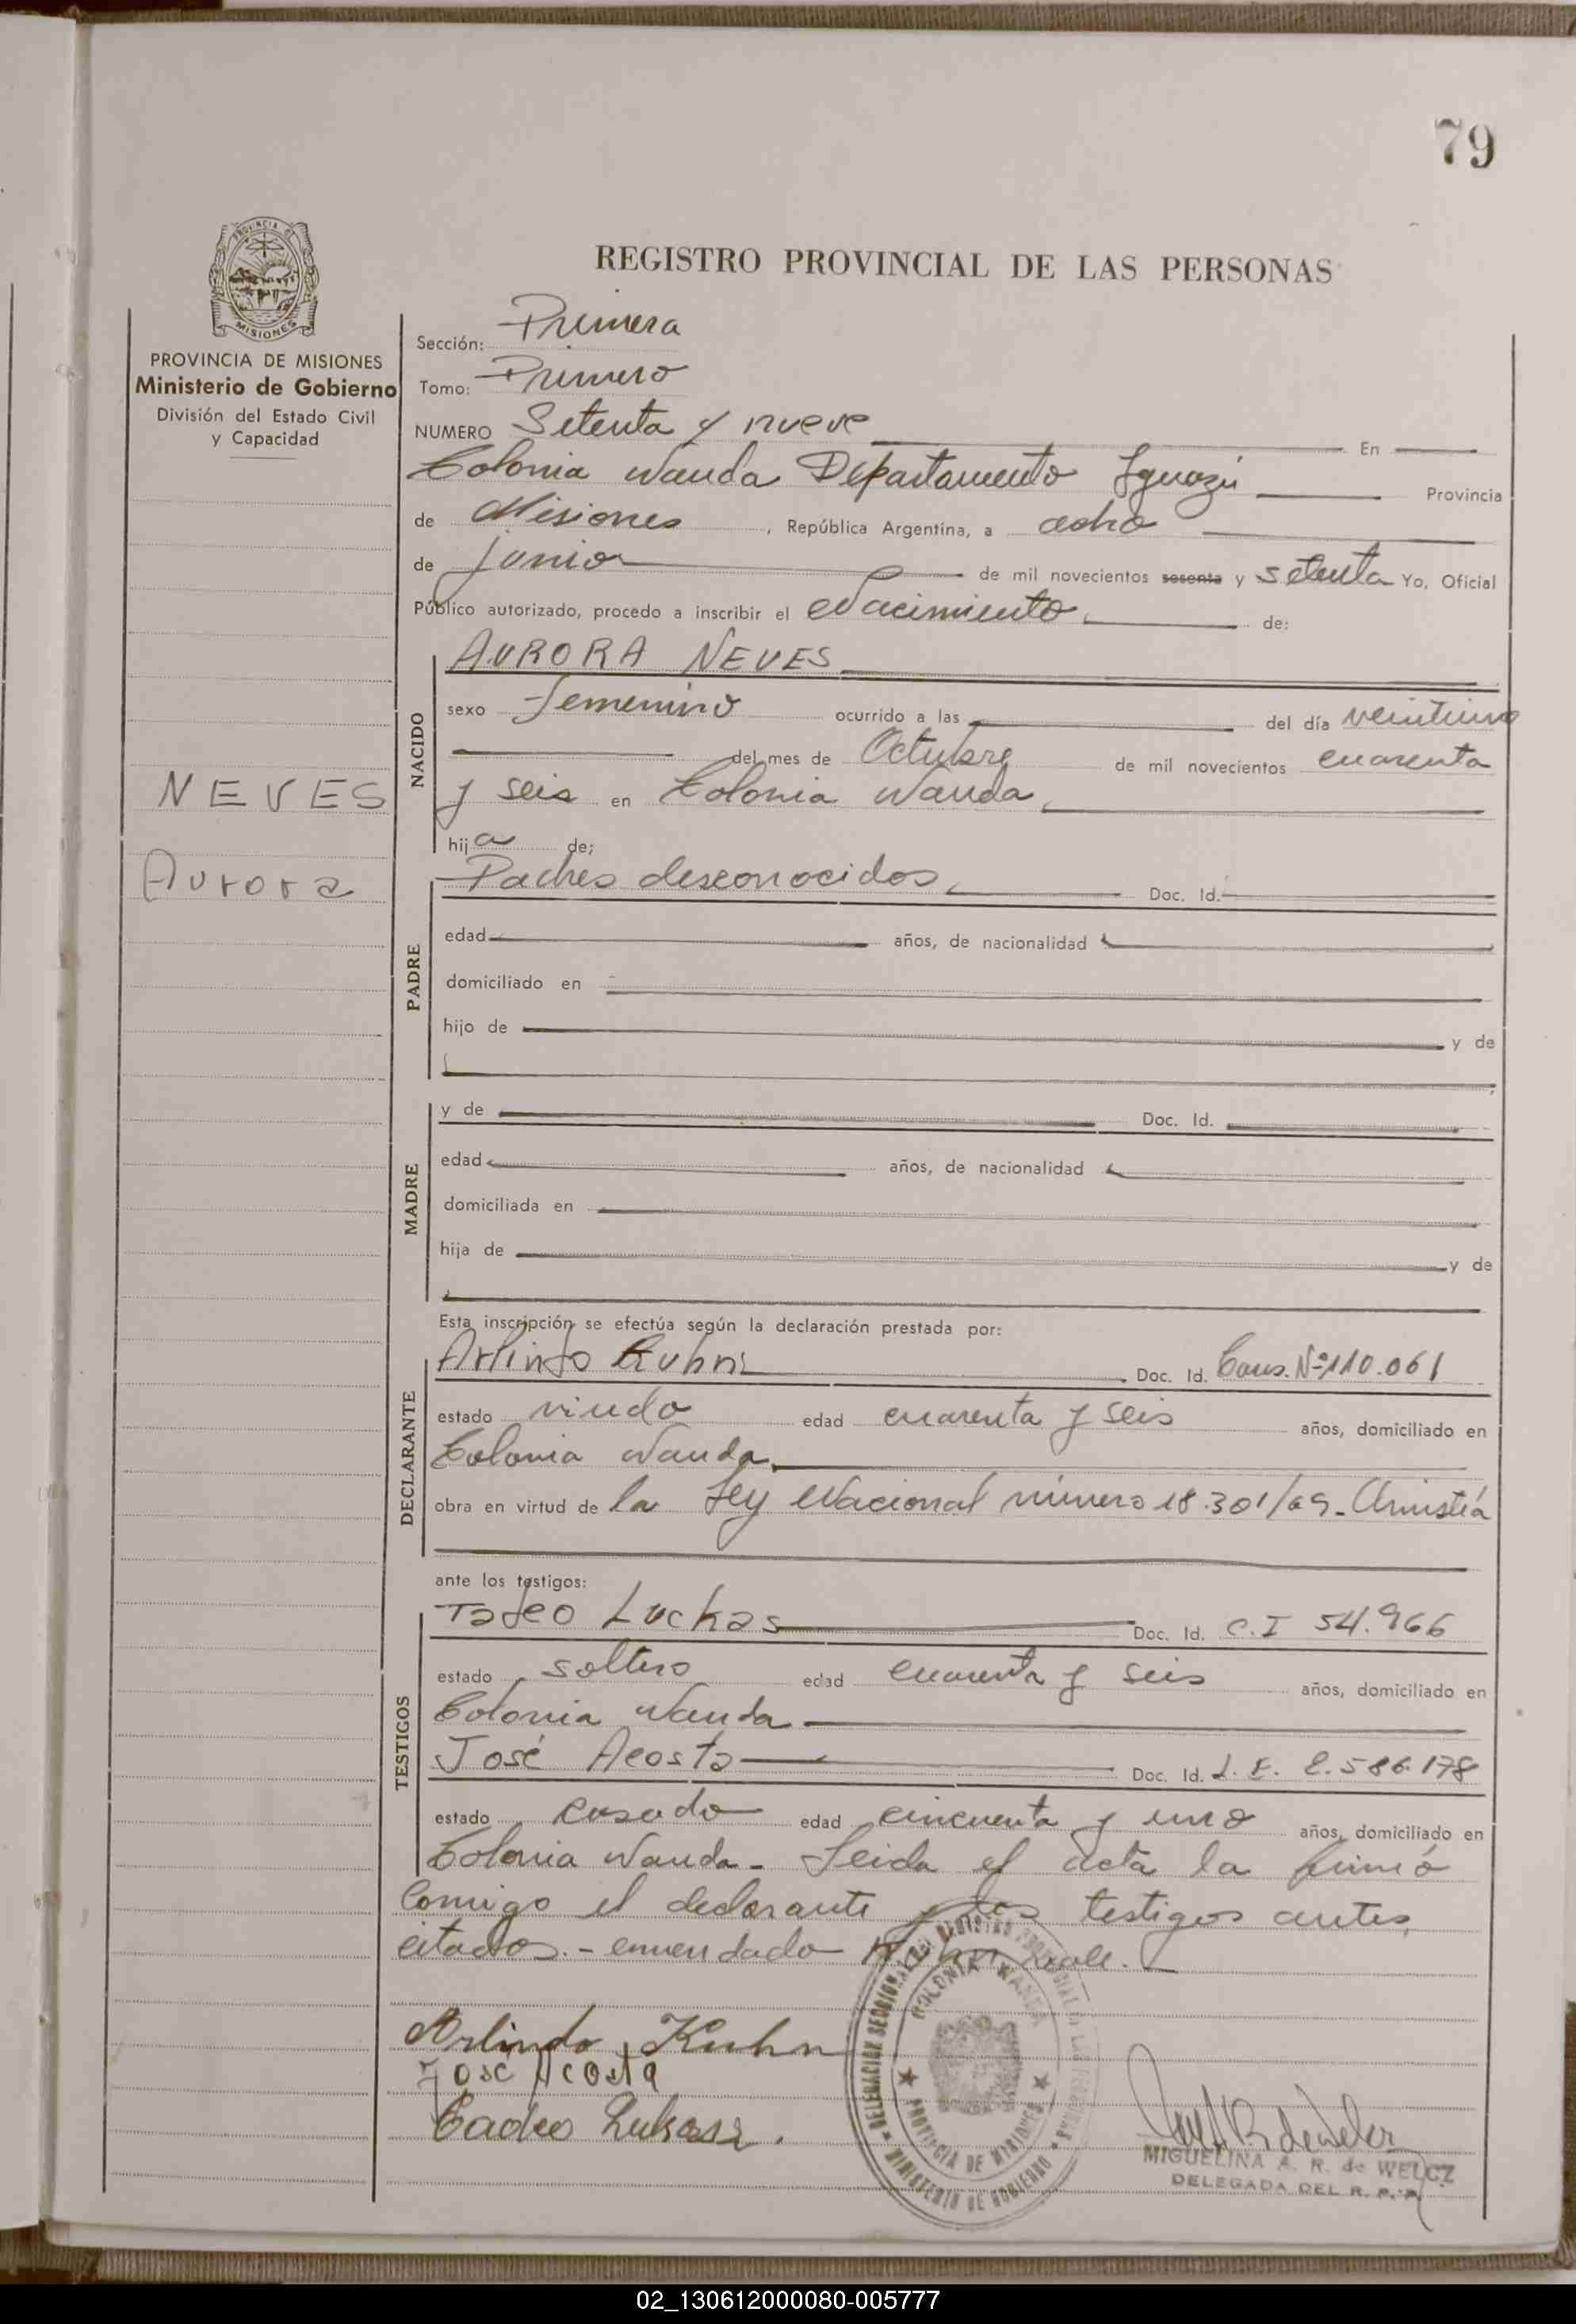 79
PROVINCIA DE
MISIONES
PROVINCIA DE MISIONES
Ministerio de Gobierno
División del Estado Civil
y Capacidad
NEVES
Aurora
REGISTRO PROVINCIAL DE LAS PERSONAS
Sección: Primera
Tomo: Primero
NUMERO Setenta y nueve En
Colonia Wanda Departamento Iguazú Provincia
de Misiones, República Argentina, a ocho
de junio de mil novecientos sesenta y setenta Yo, Oficial
Público autorizado, procedo a inscribir el Nacimiento de:
NACIDO
AURORA NEVES
sexo femenino ocurrido a las del día veintiuno
del mes de Octubre de mil novecientos cuarenta
y seis en Colonia Wanda
hija de;
PADRE
Padres desconocidos Doc. Id.
edad años, de nacionalidad
domiciliado en
hijo de y de
MADRE
y de Doc. Id.
edad años, de nacionalidad
domiciliada en
hija de y de
Esta inscripción se efectúa según la declaración prestada por:
DECLARANTE
Arlindo Kuhn Doc. Id. Cons. Nº 110.061
estado viudo edad cuarenta y seis años, domiciliado en
Colonia Wanda
obra en virtud de la Ley Nacional número 18.301/69- Amnistía
ante los testigos:
TESTIGOS
Tadeo Luckas Doc. Id. C.I 54.966
estado soltero edad cuarenta y seis años, domiciliado en
Colonia Wanda
José Acosta Doc. Id. L.E. 2.586.178
estado casado edad cincuenta y uno años, domiciliado en
Colonia Wanda- Leida el acta la firmó
Comigo el declarante y los testigos antes
citados.- enmendado Kuhn vale.
Arlindo Kuhn
Jose Acosta
Tadeo Lukasz.
DELEGACION SECCIONAL DEL REGISTRO PROVINCIAL DE LAS PERSONAS
MINISTERIO DE GOBIERNO
COLONIA WANDA
PROVINCIA DE MISIONES
MIGUELINA A. R. de WELCZ
DELEGADA DEL R. P. P.
02_130612000080-005777